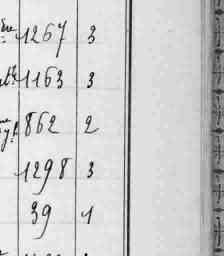 1267 3
1163 3
862 2
1298 3
39 1